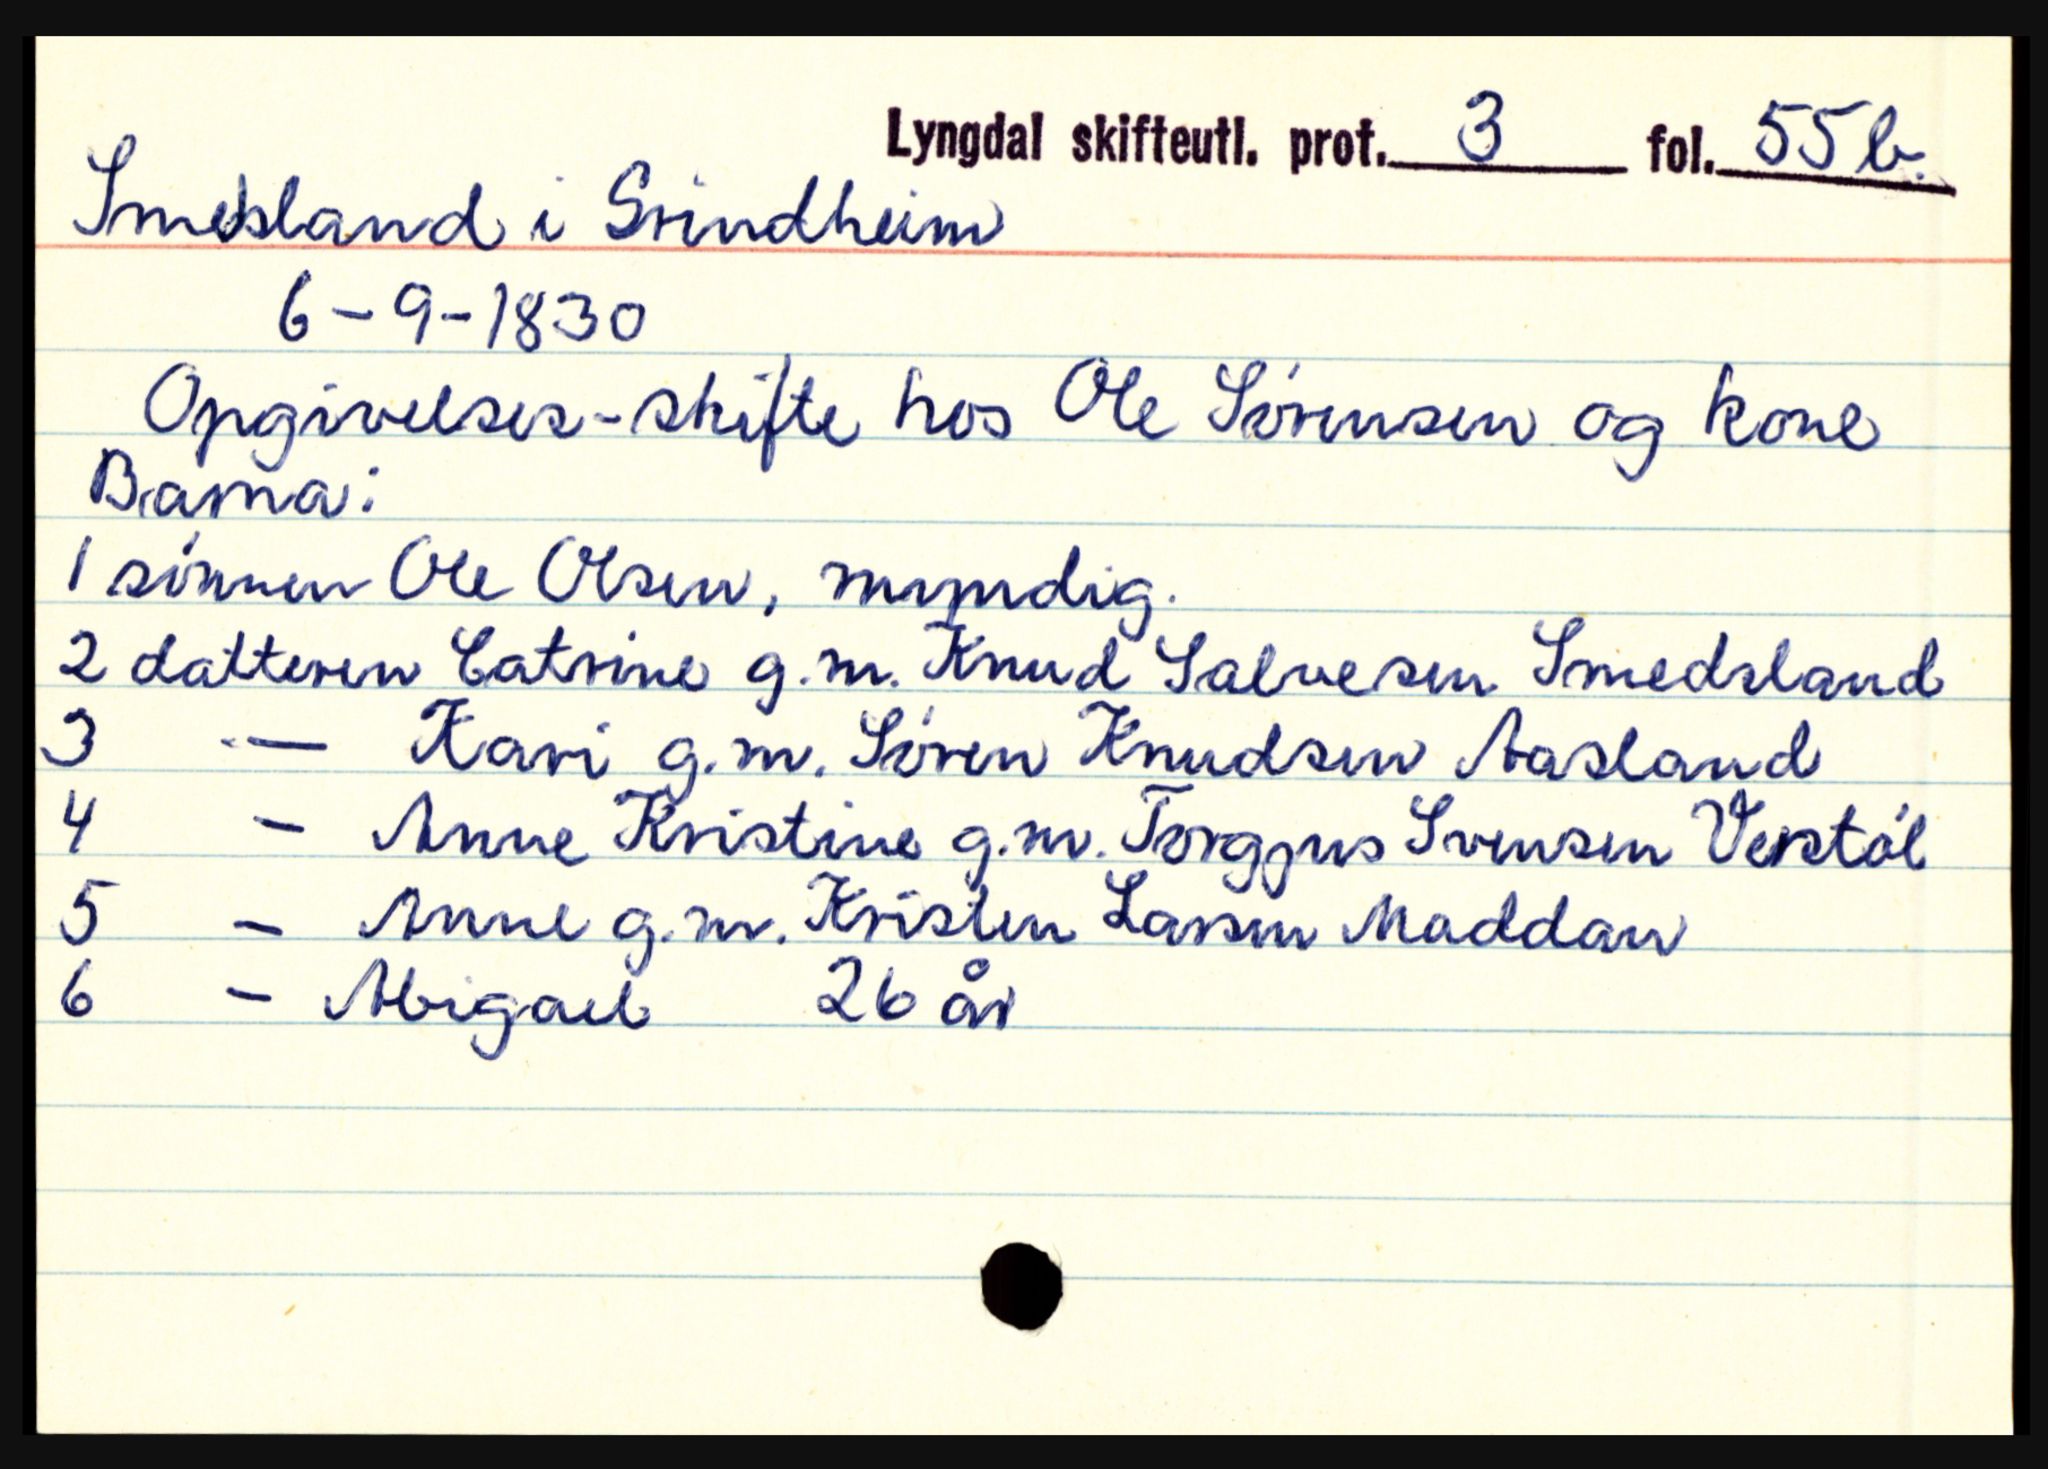 Lyngdal skifteutl. prot. 3 fol. 55 b.
Smedsland i Svindheim
6-9-1830
Opgivelses-skifte hos Ole Sørensen og kone
Barna:
1 sønnen Ole Olsen, myndig.
2 datteren Catrine g.m. Knud Salvesen Smedsland
3 — Kari g.m. Søren Knudsen Aasland
4 — Anne Kristine g.m. Torgjus Svensen Verstøl
5 — Anne g.m. Kristen Larsen Moddan
6 — Abigael 26 år